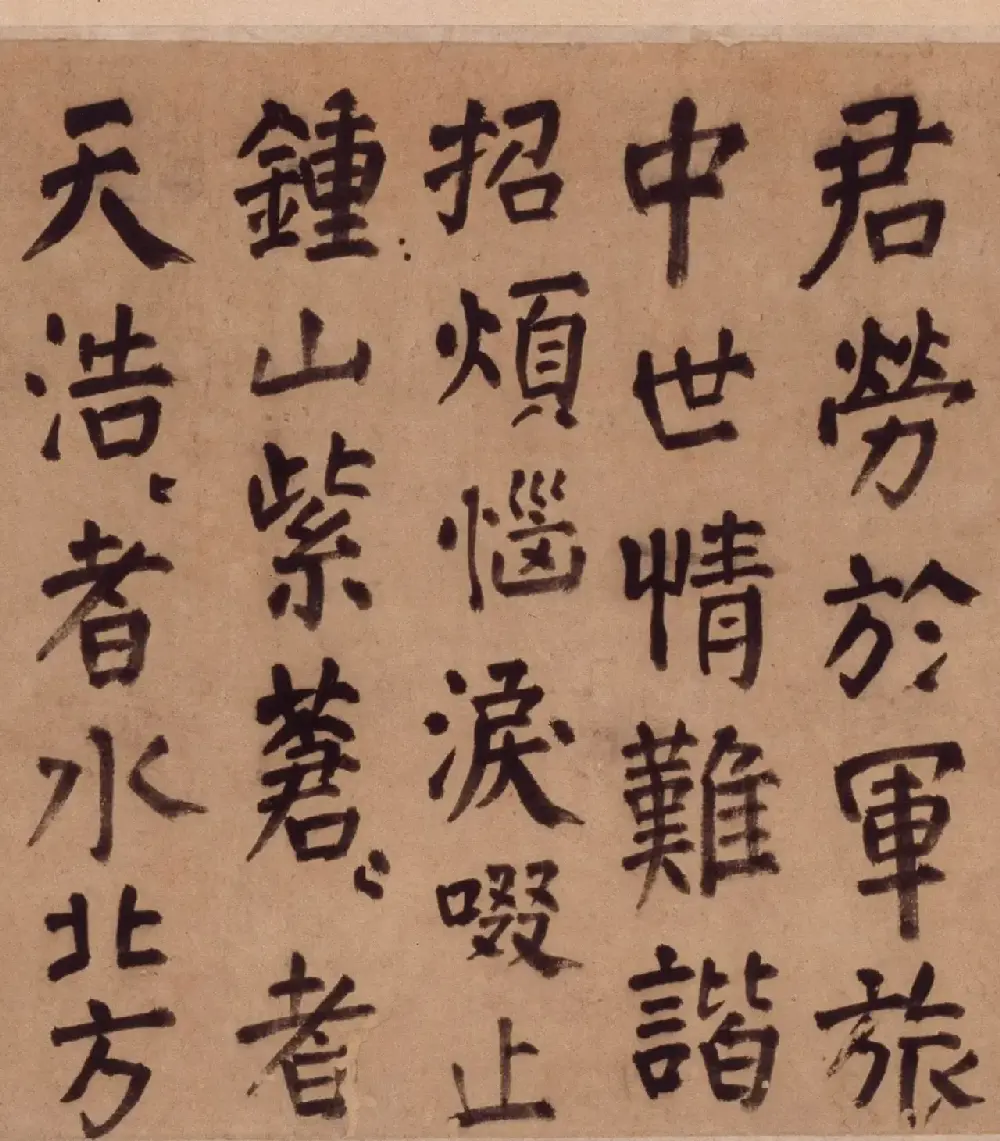 君勞於軍旅
中世情難諧
招煩惱淚啜止
鍾山紫蒼〻者
天浩〻者水北方